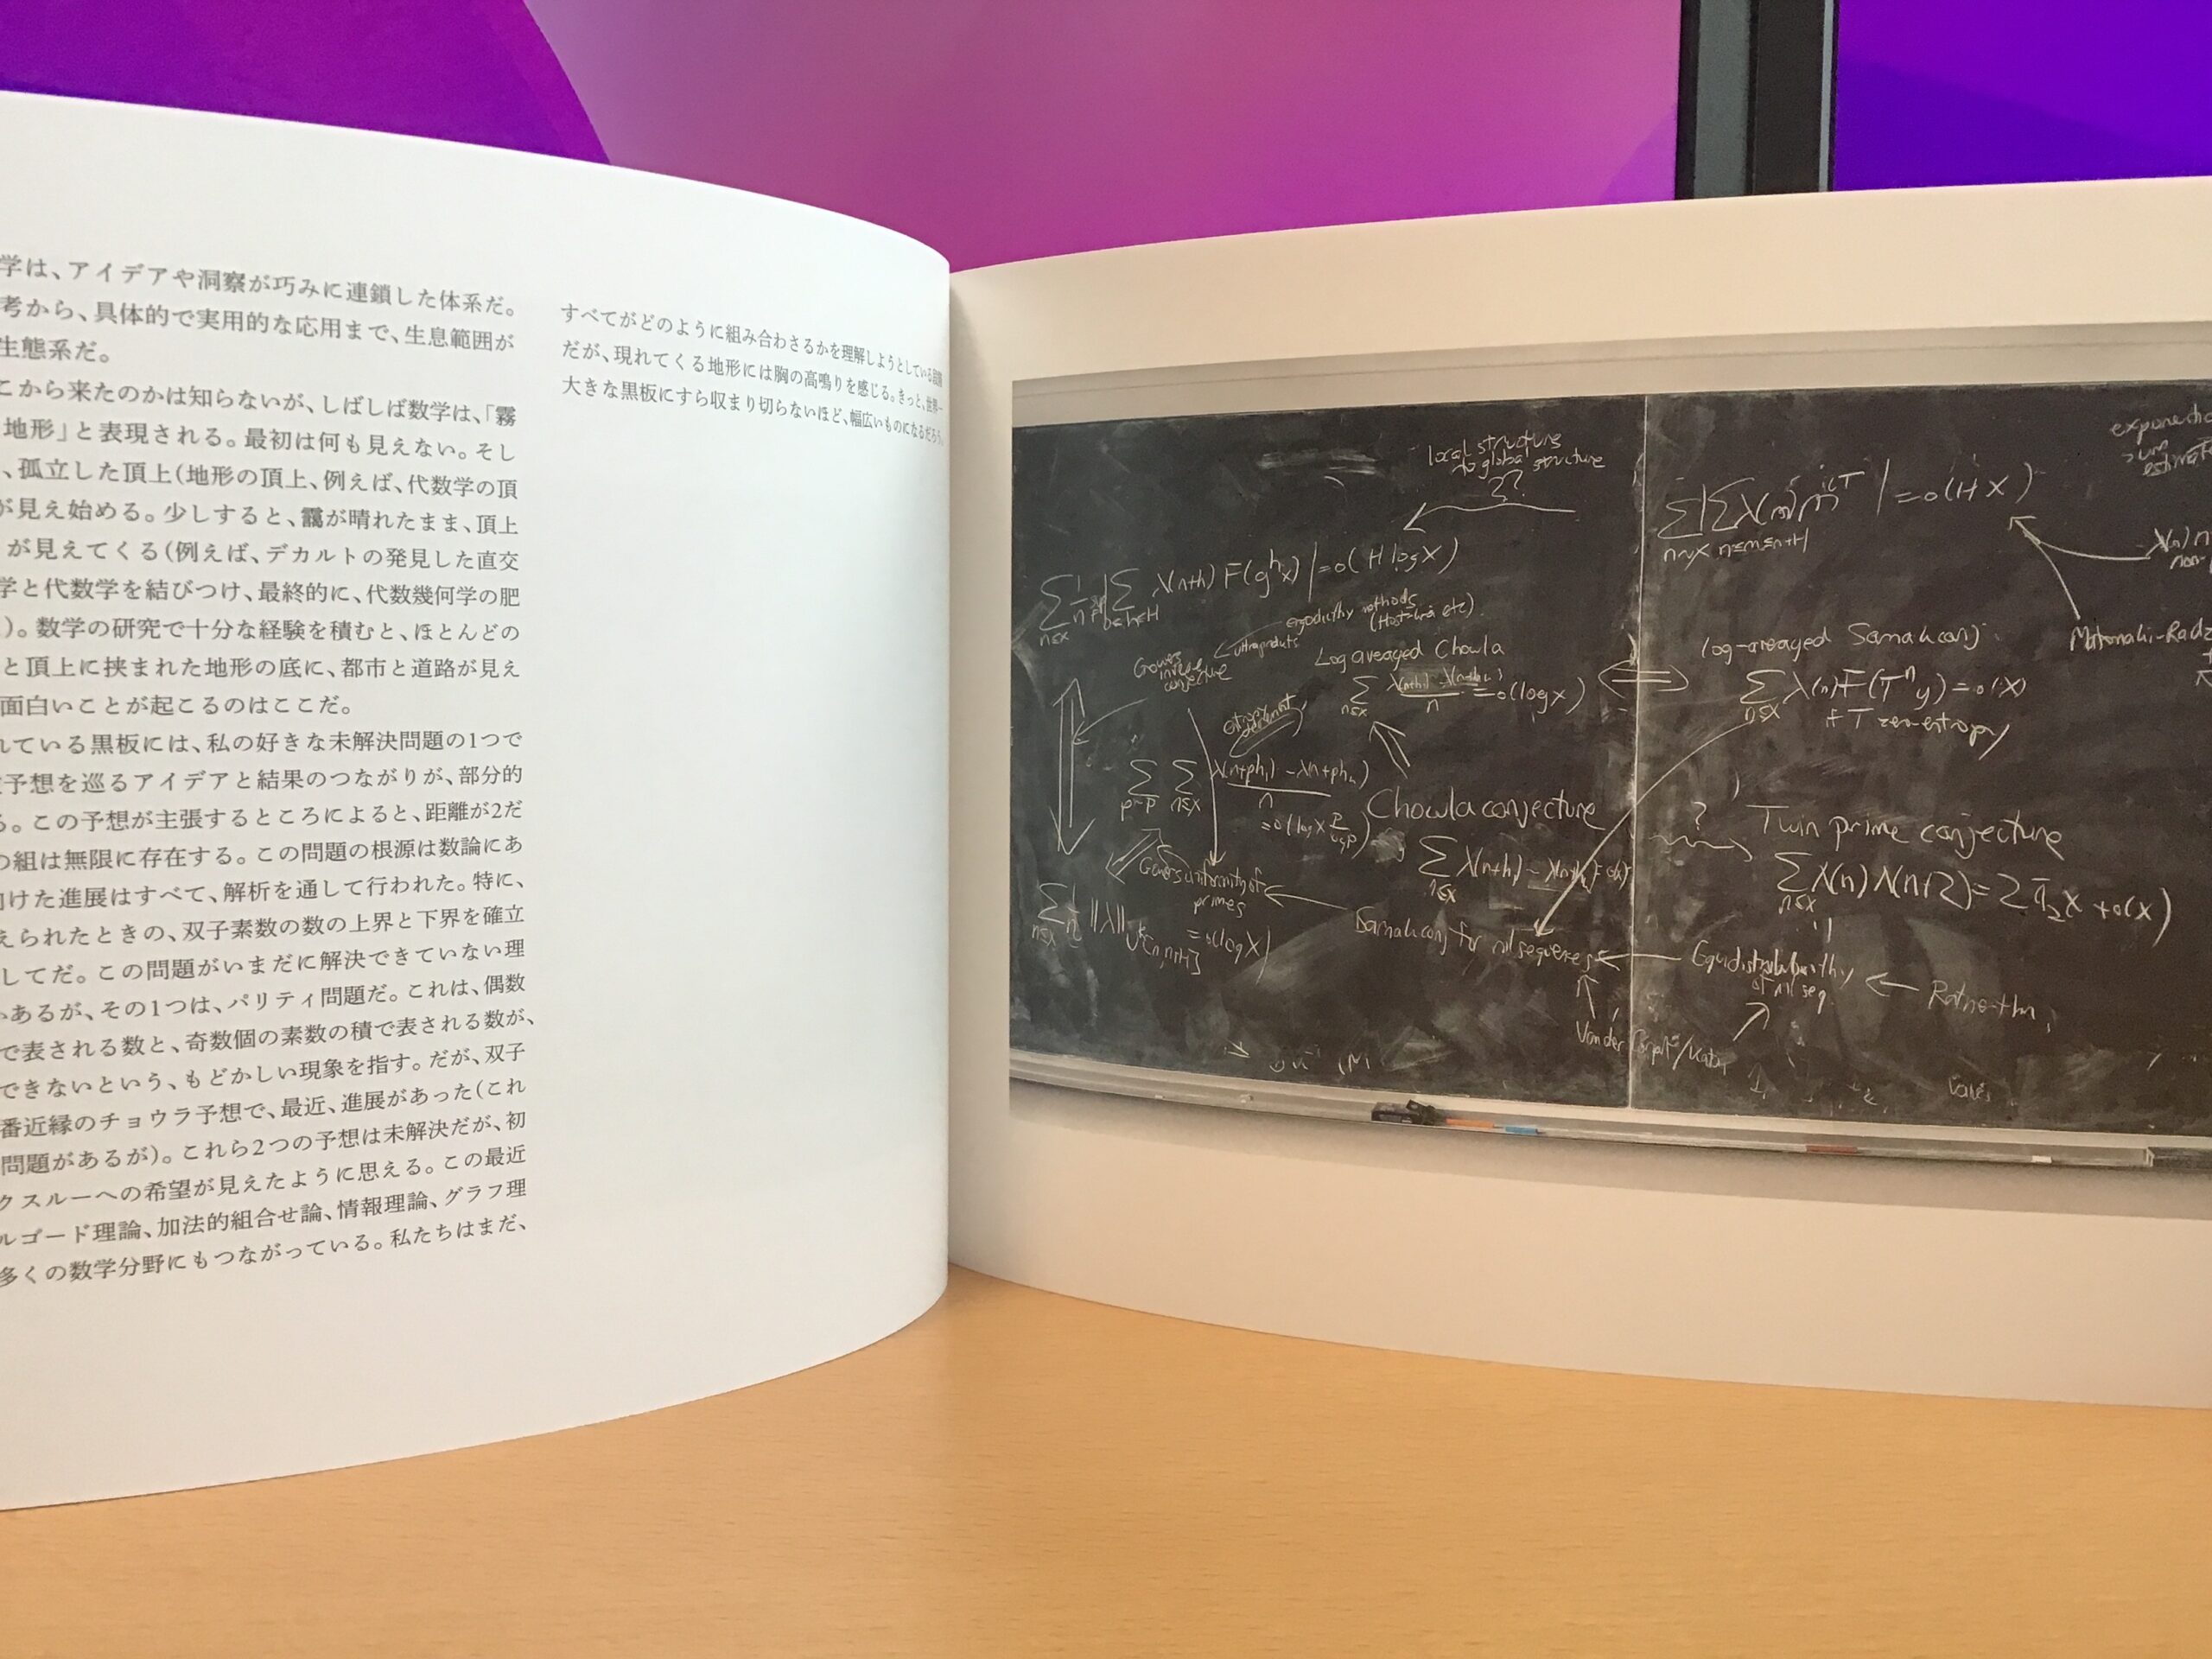 学は、アイデアや洞察が巧みに連鎖した体系だ。
考から、具体的で実用的な応用まで、生息範囲が
生態系だ。
こから来たのかは知らないが、しばしば数学は、「霧
地形」と表現される。最初は何も見えない。そし
、孤立した頂上(地形の頂上、例えば、代数学の頂
が見え始める。少しすると、靄が晴れたまま、頂上
が見えてくる(例えば、デカルトの発見した直交
学と代数学を結びつけ、最終的に、代数幾何学の肥
)。数学の研究で十分な経験を積むと、ほとんどの
と頂上に挟まれた地形の底に、都市と道路が見え
面白いことが起こるのはここだ。
れている黒板には、私の好きな未解決問題の1つで
予想を巡るアイデアと結果のつながりが、部分的
る。この予想が主張するところによると、距離が2だ
の組は無限に存在する。この問題の根源は数論にあ
向けた進展はすべて、解析を通して行われた。特に、
えられたときの、双子素数の数の上界と下界を確立
してだ。この問題がいまだに解決できていない理
あるが、その1つは、パリティ問題だ。これは、偶数
で表される数と、奇数個の素数の積で表される数が、
できないという、もどかしい現象を指す。だが、双子
番近縁のチョウラ予想で、最近、進展があった(これ
問題があるが)。これら2つの予想は未解決だが、初
クスルーへの希望が見えたように思える。この最近
ルゴード理論、加法的組合せ論、情報理論、グラフ理
多くの数学分野にもつながっている。私たちはまだ、
すべてがどのように組み合わさるかを理解しようとしている段階
だが、現れてくる地形には胸の高鳴りを感じる。きっと、世界一
大きな黒板にすら収まり切らないほど、幅広いものになるだろう。
local structure
to global structure
??
∑ 1/n |∑ λ(n+h) F(g^h x)| = o(H log X)
n≤x 0≤h≤H
ergodicity methods
(Host-Kra etc).
ultraproducts
Gowers
inverse
conjecture
Log averaged Chowla
∑ = o(log x)
n≤x n
entropy
decrement
∑ ∑ λ(n+ph₁) - λ(n+ph_k)
p~P n≤x n
Chowla conjecture
∑ λ(n+h₁)
n≤x
Gowers uniformity of
primes
∑ 1/n ||λ||U^k[n,n+H] = o(log X)
n≤x
Sarnak conj for nilsequences
∑|∑ λ(m) m^iT| = o(HX)
n~X n≤m≤n+H
log-averaged Sarnak conj.
∑ λ(n) F(T^n y) = o(X)
n≤x
F T zero-entropy
?
Twin prime conjecture
∑ Λ(n) Λ(n+2) = 2 Π₂ x + o(x)
n≤x
Equidistribution
of nil seq.
Ratner thm
Van der Corput/Katai
exponential
sum
estimate
λ(n) n
non-
Matomaki-Radz